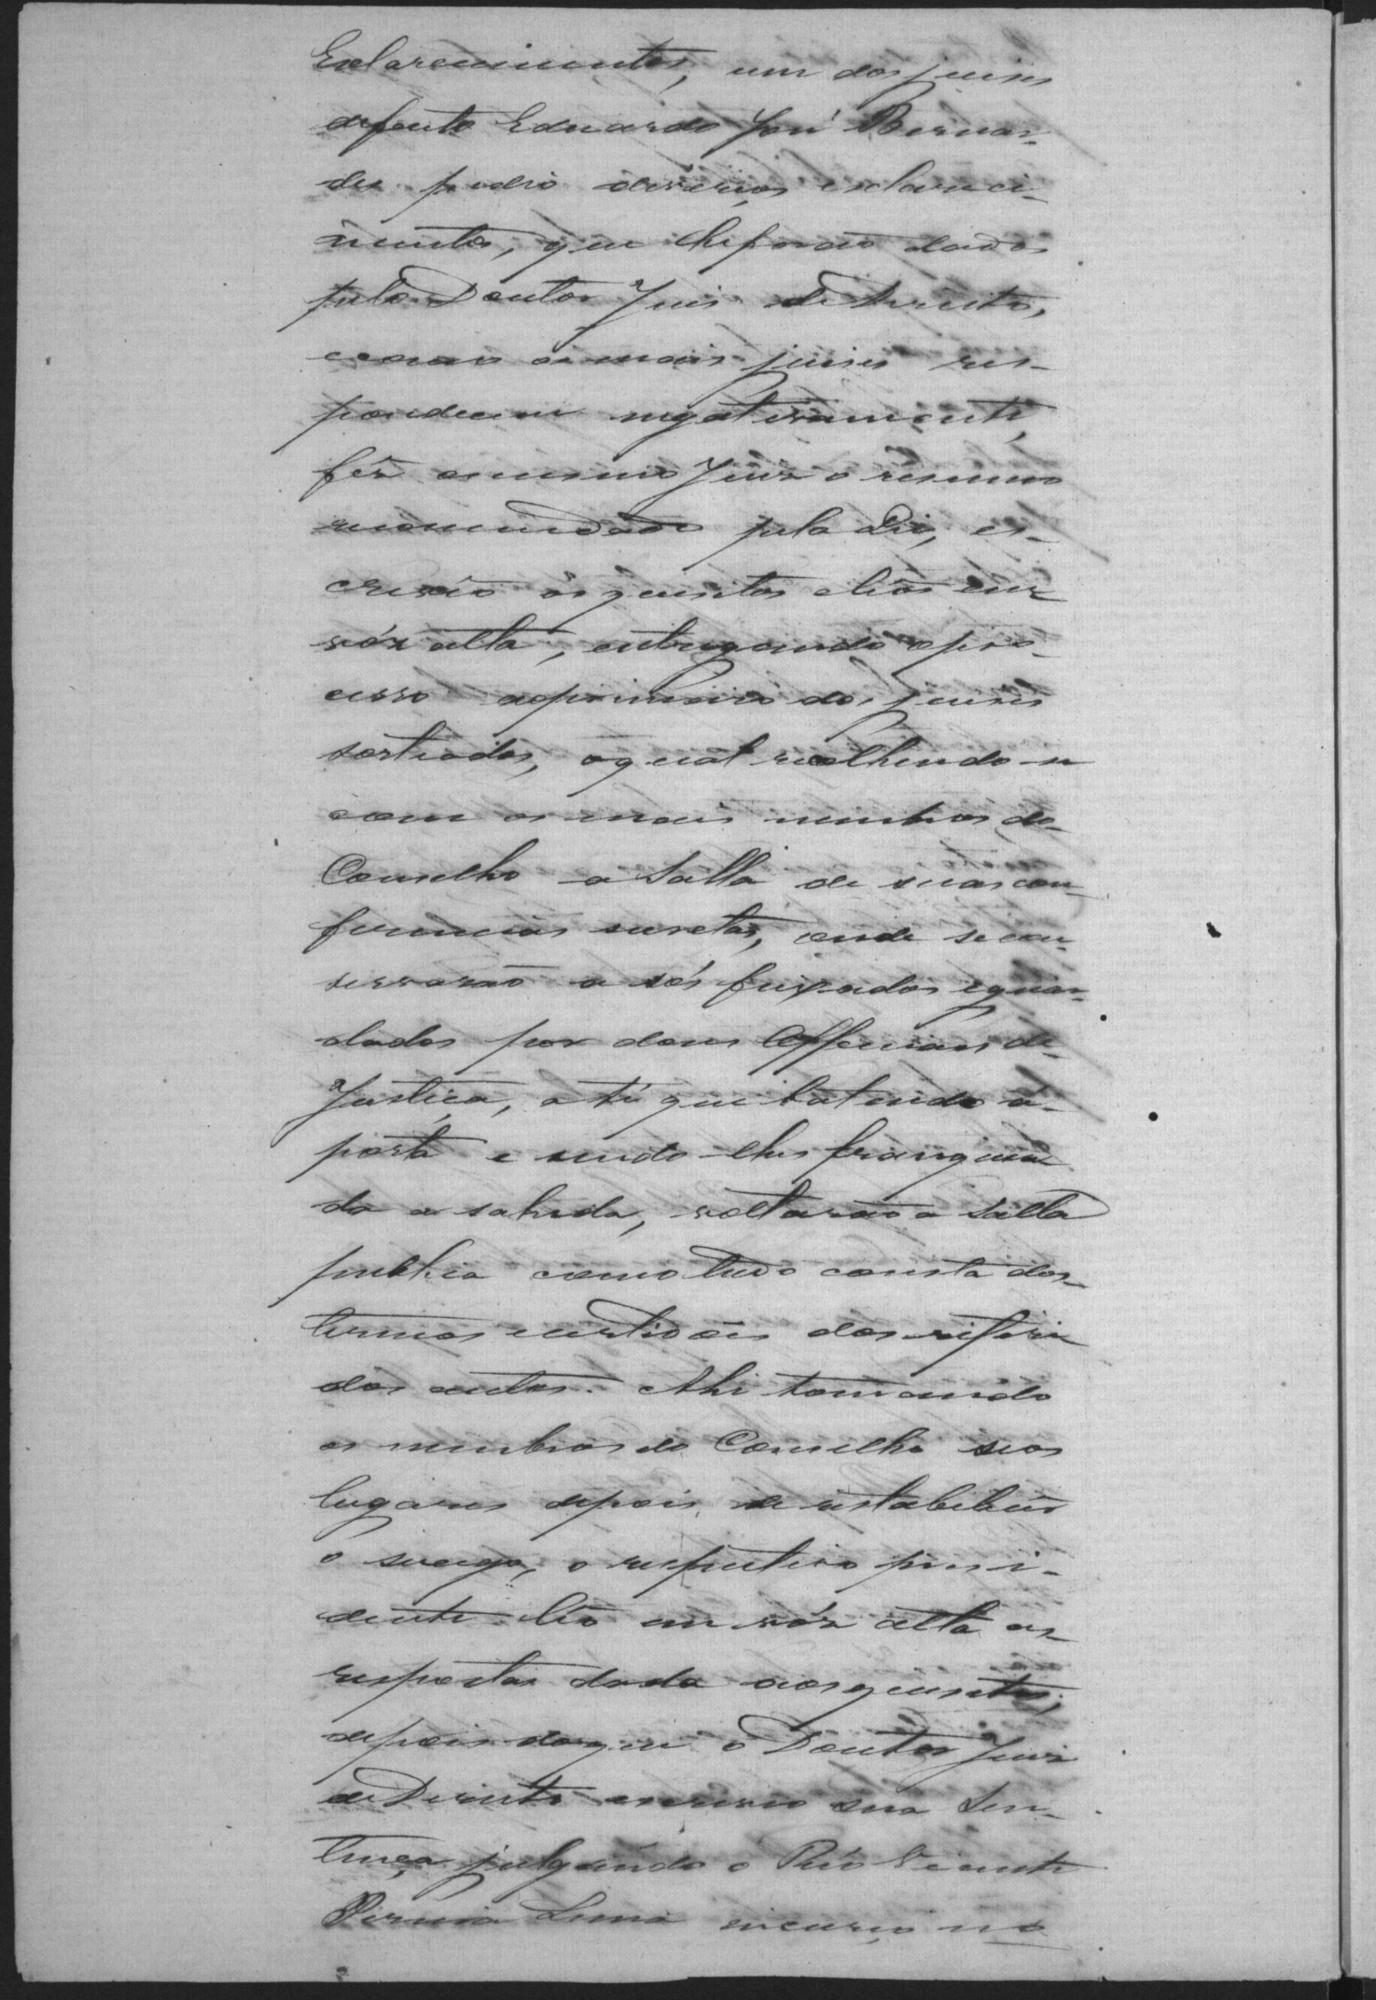 Esclarecimentos, um dos juises
defacto Eduardo José Bernar-
des pedio diversos esclareci-
mentos, que lhe forão dados
pelo Doutor Juis de Direito,
como os mais juises res-
ponderem negativamente,
fêz o mesmo Juiz o resumo
recommendado pela Lei, es-
creveo os quesitos e lêos em
vóz alta, entregando o pro-
cesso ao primeiro dos juises
sorteados, o qual recolhendo-se
com os mais membros do
Conselho a Salla de suas con-
ferencias secretas, onde se con-
servarão a sós fixados e guar-
dados por dous Officiaes de
Justiça, até que batendo á
porta e sendo-lhes franquea
da a sahida, voltarão a Salla
publica como tudo consta dos
termos e certidões dos referi
dos autos. Ahi tomando
os membros do Conselho seos
lugares depois de restabelecido
o socego, o respectivo presi-
dente lêo em vóz alta as
respostas dada aos quesitos;
depois do que o Doutor Juiz
de Direito escreveo sua Sen-
tença julgando o Réo Vicente
Pereira Lima incurço no